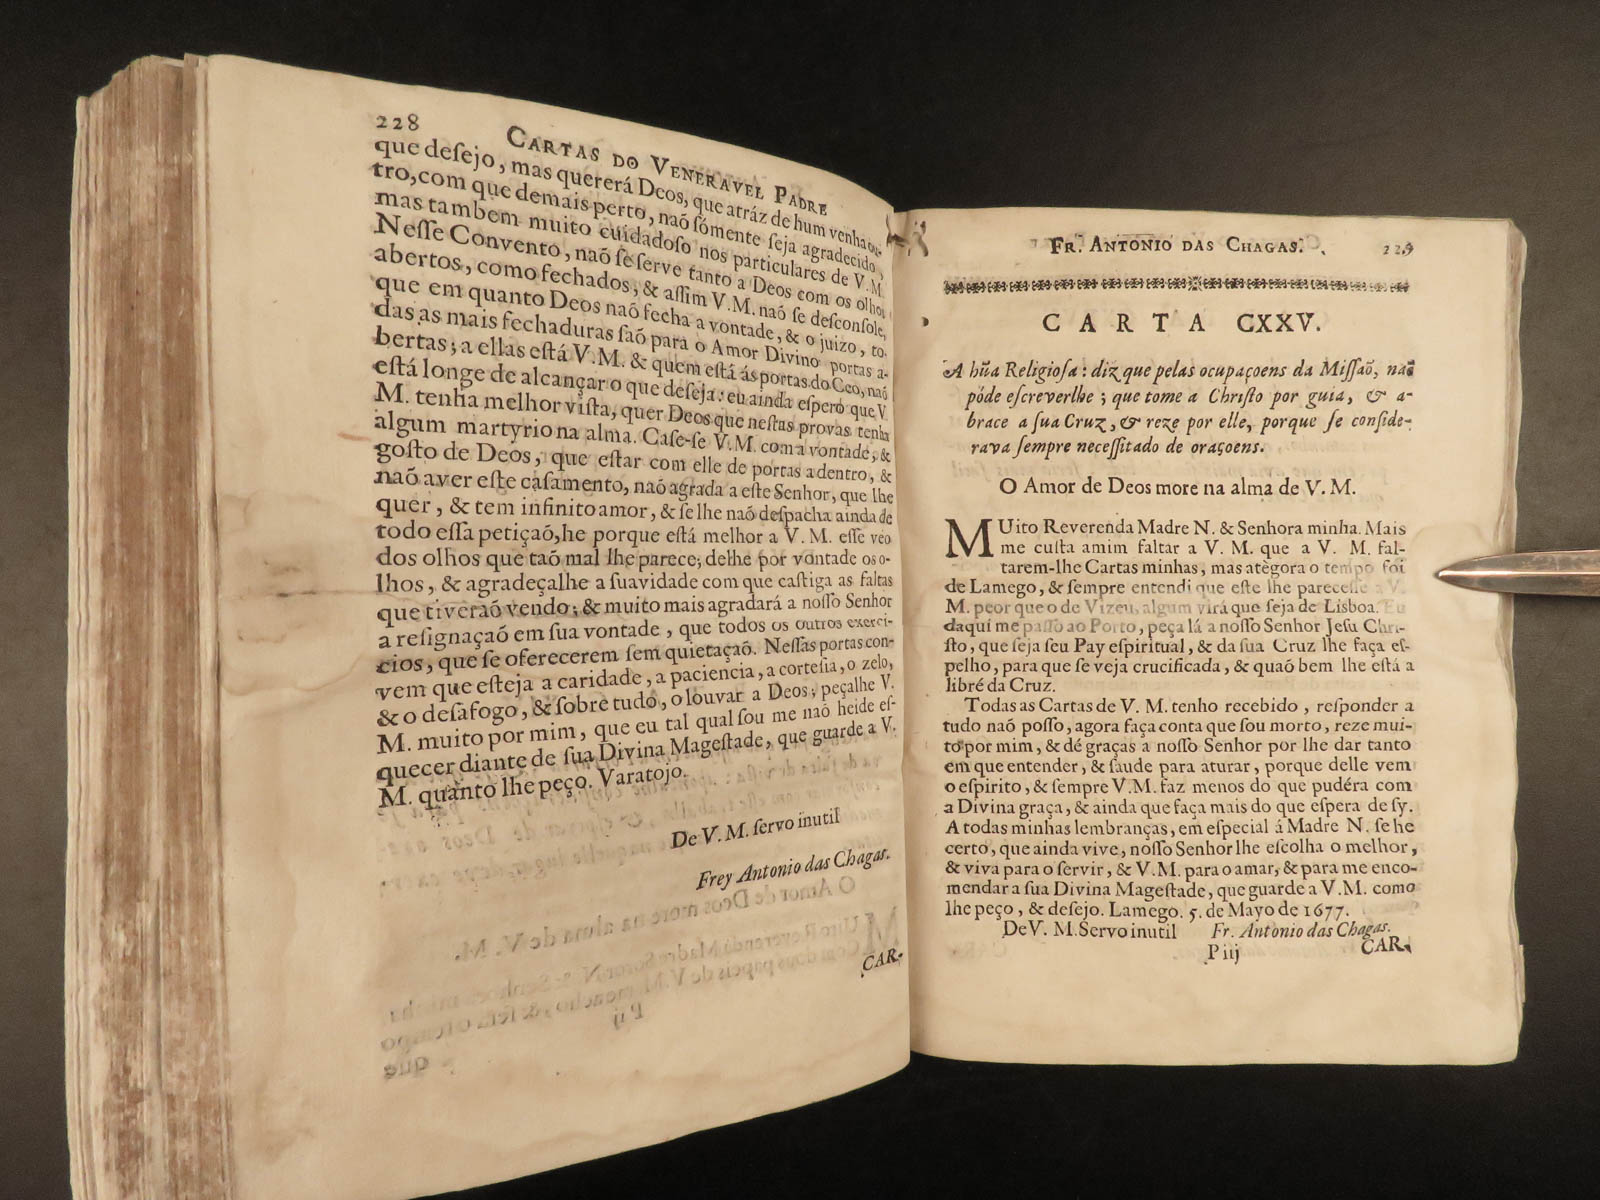 228 CARTAS DO VENERAVEL PADRE
que deſejo, mas quererá Deos, que atráz de hum venha ou-
tro, com que demais perto, naõ ſómente ſeja agradecido,
mas tambem muito cuidadoſo nos particulares de V. M.
Neſſe Convento, naõ ſe ſerve tanto a Deos com os olhos
abertos, como fechados, & aſſim V. M. naõ ſe deſconſole,
que em quanto Deos naõ fecha a vontade, & o juizo, to-
das as mais fechaduras ſaõ para o Amor Divino portas a-
bertas; a ellas eſtá V. M. & quem eſtá ás portas do Ceo, naõ
eſtá longe de alcançar o que deſeja: eu ainda eſpero que V.
M. tenha melhor viſta, quer Deos que neſtas provas tenha
algum martyrio na alma. Caſe-ſe V. M. com a vontade, &
goſto de Deos, que eſtar com elle de portas adentro, &
naõ aver eſte caſamento, naõ agrada a eſte Senhor, que lhe
quer, & tem infinito amor, & ſe lhe naõ deſpacha ainda de
todo eſſa petiçaõ, he porque eſtá melhor a V. M. eſſe veo
dos olhos que taõ mal lhe parece; delhe por vontade os o-
lhos, & agradeçalhe a ſuavidade com que caſtiga as faltas
que tiveraõ vendo; & muito mais agradará a noſſo Senhor
a reſignaçaõ em ſua vontade, que todos os outros exerci-
cios, que ſe oferecerem ſem quietaçaõ. Neſſas portas con-
vem que eſteja a caridade, a paciencia, a corteſia, o zelo,
& o deſafogo, & ſobre tudo, o louvar a Deos; peçalhe V.
M. muito por mim, que eu tal qual ſou me naõ heide eſ-
quecer diante de ſua Divina Mageſtade, que guarde a V.
M. quanto lhe peço. Varatojo.
De V. M. ſervo inutil
Frey Antonio das Chagas.
CAR-
FR. ANTONIO DAS CHAGAS. 229
CARTA CXXV.
A hũa Religioſa: diz que pelas ocupaçoens da Miſſaõ, naõ
póde eſcreverlhe; que tome a Chriſto por guia, & a-
brace a ſua Cruz, & reze por elle, porque ſe conſide-
rava ſempre neceſſitado de oraçoens.
O Amor de Deos more na alma de V. M.
MUito Reverenda Madre N. & Senhora minha. Mais
me cuſta amim faltar a V. M. que a V. M. fal-
tarem-lhe Cartas minhas, mas atègora o tempo foi
de Lamego, & ſempre entendi que eſte lhe pareceſſe a V.
M. peor que o de Vizeu, algum virá que ſeja de Lisboa. Eu
daqui me paſſo ao Porto, peça lá a noſſo Senhor Jeſu Chri-
ſto, que ſeja ſeu Pay eſpiritual, & da ſua Cruz lhe faça eſ-
pelho, para que ſe veja crucificada, & quaõ bem lhe eſtá a
libré da Cruz.
Todas as Cartas de V. M. tenho recebido, reſponder a
tudo naõ poſſo, agora faça conta que ſou morto, reze mui-
to por mim, & dé graças a noſſo Senhor por lhe dar tanto
em que entender, & ſaude para aturar, porque delle vem
o eſpirito, & ſempre V. M. faz menos do que pudéra com
a Divina graça, & ainda que faça mais do que eſpera de ſy.
A todas minhas lembranças, em eſpecial á Madre N. ſe he
certo, que ainda vive, noſſo Senhor lhe eſcolha o melhor,
& viva para o ſervir, & V. M. para o amar, & para me enco-
mendar a ſua Divina Mageſtade, que guarde a V. M. como
lhe peço, & deſejo. Lamego. 5. de Mayo de 1677.
De V. M. Servo inutil Fr. Antonio das Chagas.
P iij CAR-